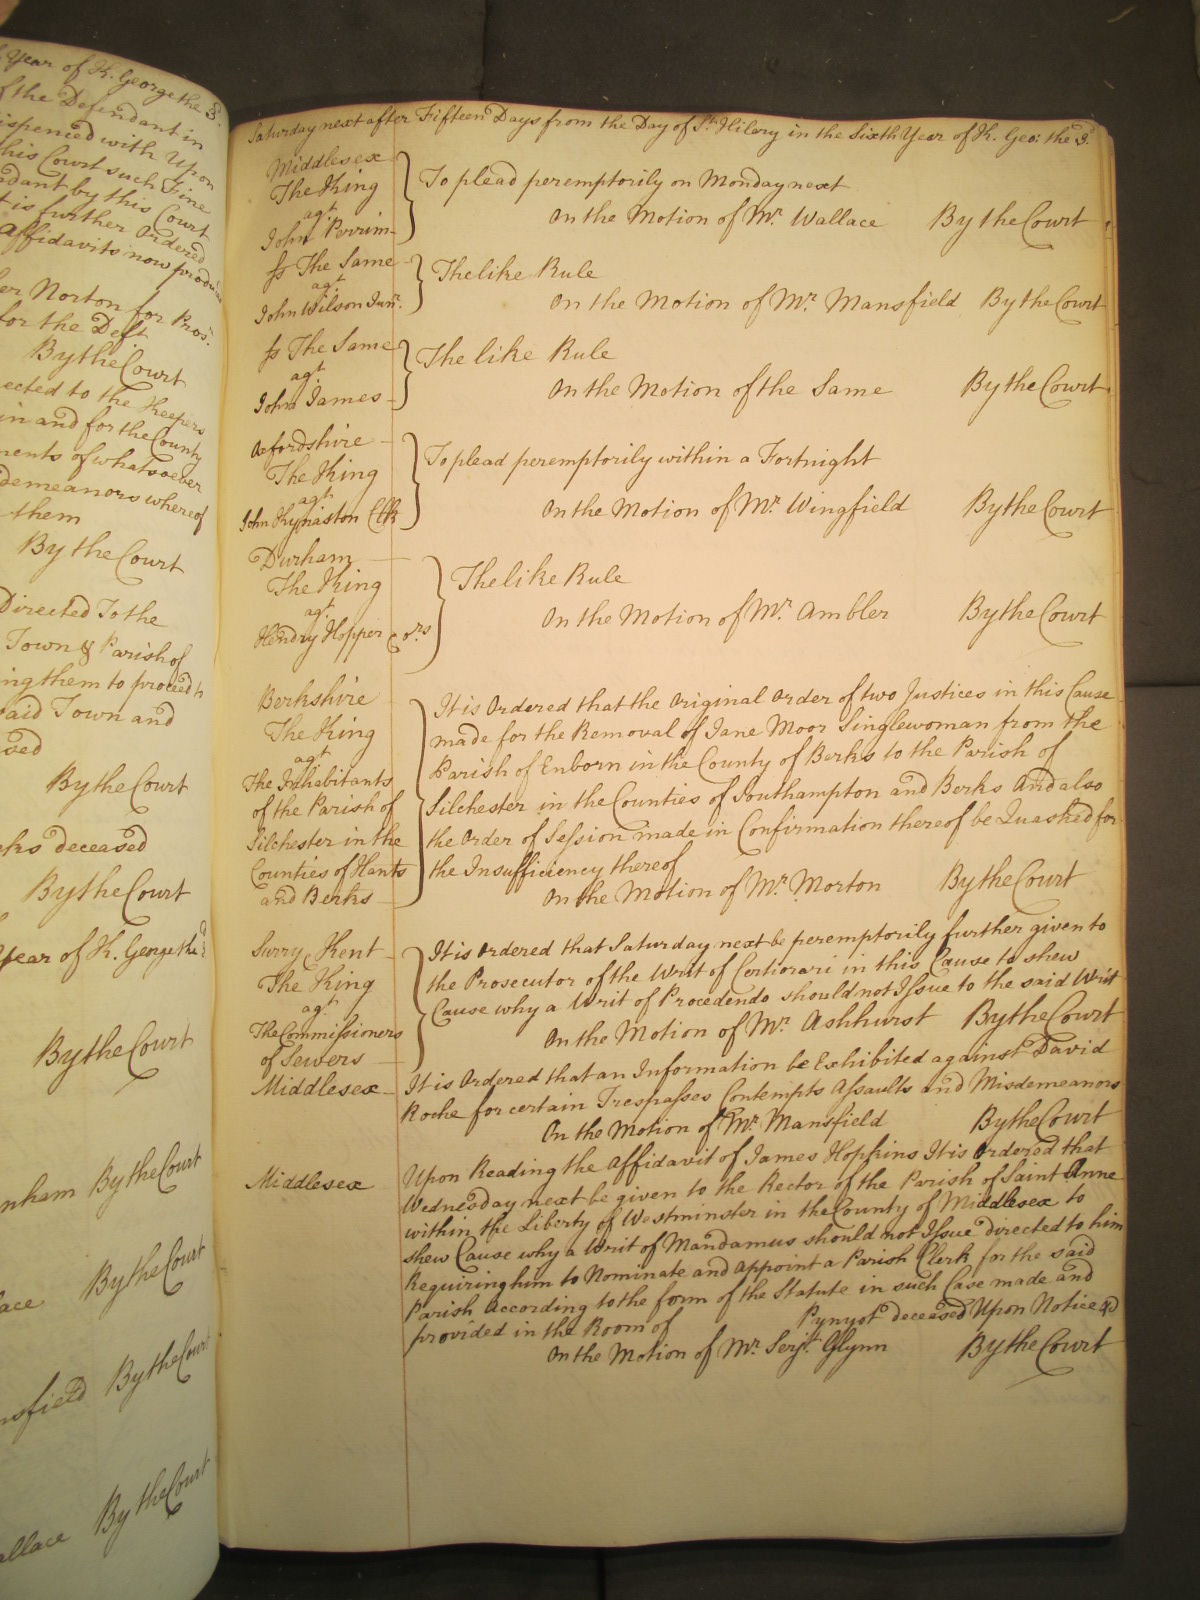 Year of K. George the 3.d
of the Defendant in
ispenced with Upon
his Court such Fine
ndant by this Court
t is further Ordered
Affidavits now produced
er Norton for Pros.r
for the Deft
By the Court
ected to the Keepers
in and for the County
ments of whatsoever
demeanors whereof
them
By the Court
Directed To the
Town & Parish of
ing them to proceed to
said Town and
sed
By the Court
rks deceased
By the Court
Year of K. George the 3.d
By the Court
nham By the Court
lace By the Court
nsfield By the Court
allace By the Court
Saturday next after Fifteen Days from the Day of St. Hilary in the Sixth Year of K. Geo: the 3.d
Middlesex
The King
agt
John Perrim
To plead peremptorily on Monday next
On the Motion of Mr. Wallace By the Court
ss The Same
agt
John Wilson Junr.
The like Rule
On the Motion of Mr. Mansfield By the Court
ss The Same
agt
John James
The like Rule
On the Motion of the Same By the Court
Oxfordshire
The King
agt
John Kynaston Clk
To plead peremptorily within a Fortnight
On the Motion of Mr. Wingfield By the Court
Durham
The King
agt
Hendry Hopper & ors
The like Rule
On the Motion of Mr. Ambler By the Court
Berkshire
The King
agt
The Inhabitants
of the Parish of
Silchester in the
Counties of Hants
and Berks
It is Ordered that the Original Order of two Justices in this Cause
made for the Removal of Jane Moor Singlewoman from the
Parish of Enborn in the County of Berks to the Parish of
Silchester in the Counties of Southampton and Berks And also
the Order of Session made in Confirmation thereof be Quashed for
the Insufficiency thereof
On the Motion of Mr. Morton By the Court
Surry & Kent
The King
agt
The Commissioners
of Sewers
It is Ordered that Saturday next be peremptorily further given to
the Prosecutor of the Writ of Certiorari in this Cause to shew
Cause why a Writ of Procedendo should not Issue to the said Writ
On the Motion of Mr. Ashhurst By the Court
Middlesex
It is Ordered that an Information be Exhibited against David
Roche for certain Trespasses Contempts Assaults and Misdemeanors
On the Motion of Mr. Mansfield By the Court
Middlesex
Upon Reading the Affidavit of James Hopkins It is Ordered that
Wednesday next be given to the Rector of the Parish of Saint Anne
within the Liberty of Westminster in the County of Middlesex to
shew Cause why a Writ of Mandamus should not Issue directed to him
Requiring him to Nominate and Appoint a Parish Clerk for the said
Parish According to the form of the Statute in such Case made and
provided in the Room of Pynyot deceased Upon Notice &c
On the Motion of Mr. Serjt. Glynn By the Court